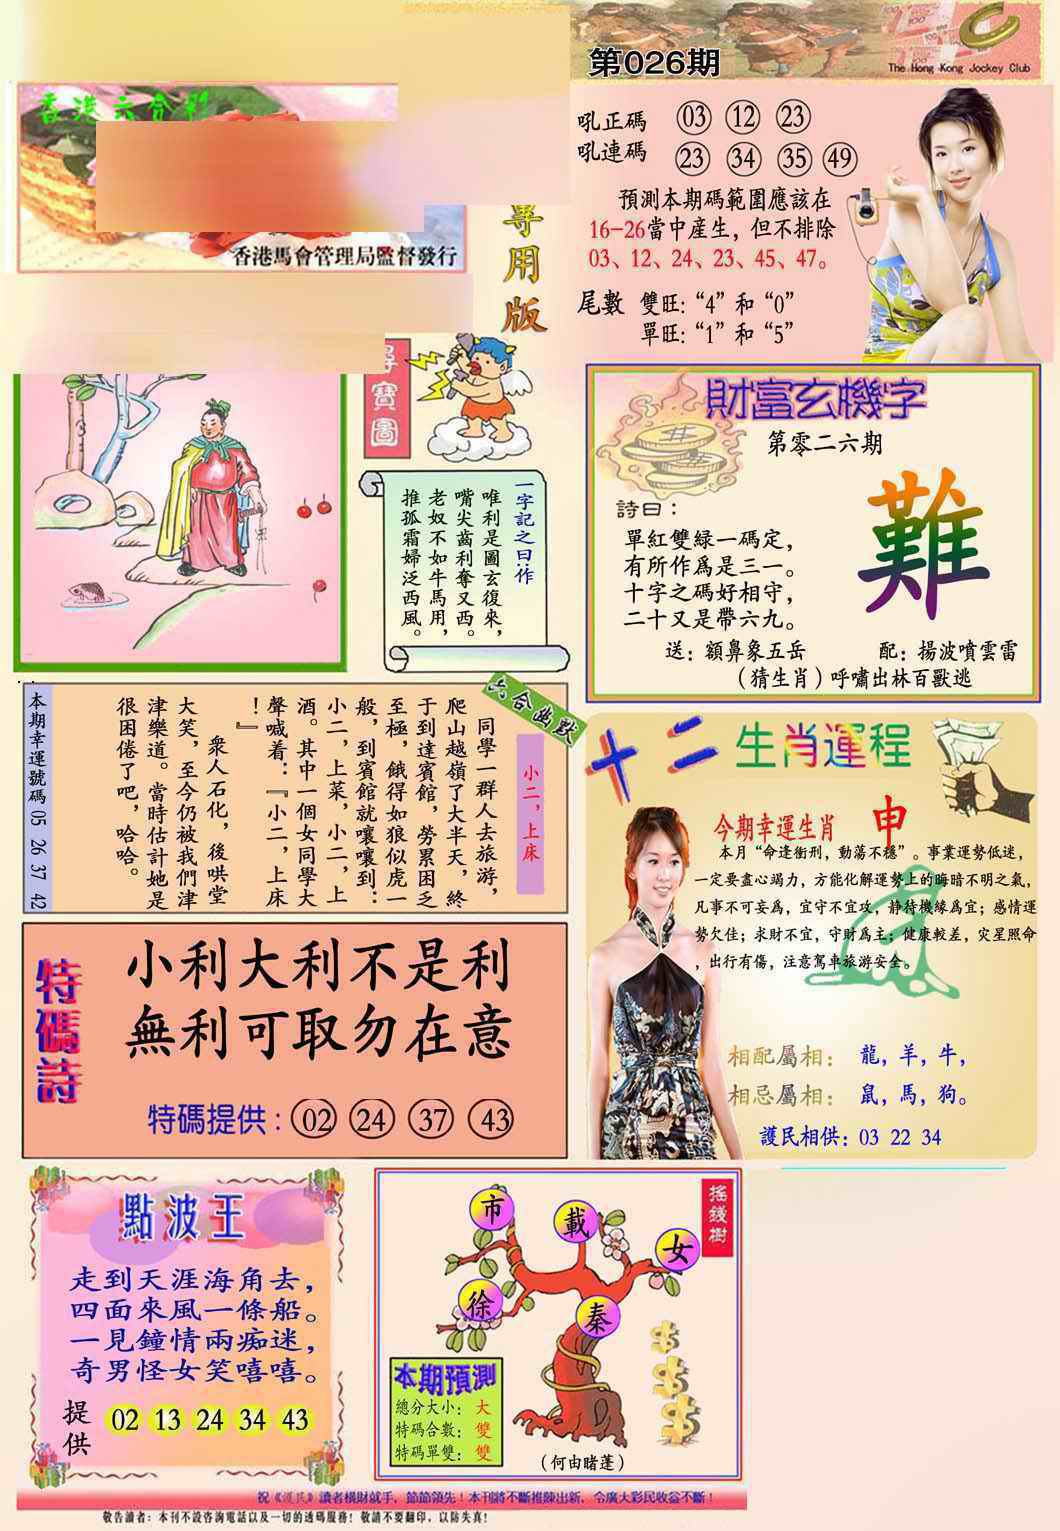 第026期
The Hong Kong Jockey Club
香港六合彩
香港馬會管理局監督發行
專用版
吼正碼 03 12 23
吼連碼 23 34 35 49
預測本期碼範圍應該在
16-26當中産生，但不排除
03、12、24、23、45、47。
尾數 雙旺:“4”和“0”
單旺:“1”和“5”
尋寶圖
一字記之曰:作
唯利是圖玄復來，
嘴尖齒利奪又西。
老奴不如牛馬用，
推孤霜婦泛西風。
財富玄機字
第零二六期
難
詩曰：
單紅雙緑一碼定，
有所作爲是三一。
十字之碼好相守，
二十又是帶六九。
送：額鼻象五岳
配：揚波噴雲雷
（猜生肖）呼嘯出林百獸逃
六合幽默
小二，上床
同學一群人去旅游，
爬山越嶺了大半天，終
于到達賓館，勞累困乏
至極，餓得如狼似虎一
般，到賓館就嚷嚷到：
小二，上菜，小二，上
酒。其中一個女同學大
聲喊着：『小二，上床
！』
衆人石化，後哄堂
大笑，至今仍被我們津
津樂道。當時估計她是
很困倦了吧，哈哈。
本期幸運號碼 05 26 37 42
十二生肖運程
今期幸運生肖 申
本月“命逢衝刑，動蕩不穩”。事業運勢低迷，
一定要盡心竭力，方能化解運勢上的晦暗不明之氣，
凡事不可妄爲，宜守不宜攻，静待機緣爲宜；感情運
勢欠佳；求財不宜，守財爲主；健康較差，灾星照命
，出行有傷，注意駕車旅游安全。
相配屬相： 龍，羊，牛，
相忌屬相： 鼠，馬，狗。
護民相供：03 22 34
特碼詩
小利大利不是利
無利可取勿在意
特碼提供：02 24 37 43
點波王
走到天涯海角去，
四面來風一條船。
一見鐘情兩痴迷，
奇男怪女笑嘻嘻。
提供 02 13 24 34 43
搖錢樹
市
載
女
徐
秦
本期預測
總分大小：大
特碼合數：雙
特碼單雙：雙
（何由睹蓬）
祝《護民》讀者横財就手，節節領先！本刊將不斷推陳出新，令廣大彩民收益不斷！
敬告讀者：本刊不設咨詢電話以及一切的透碼服務！敬請不要翻印，以防失真！